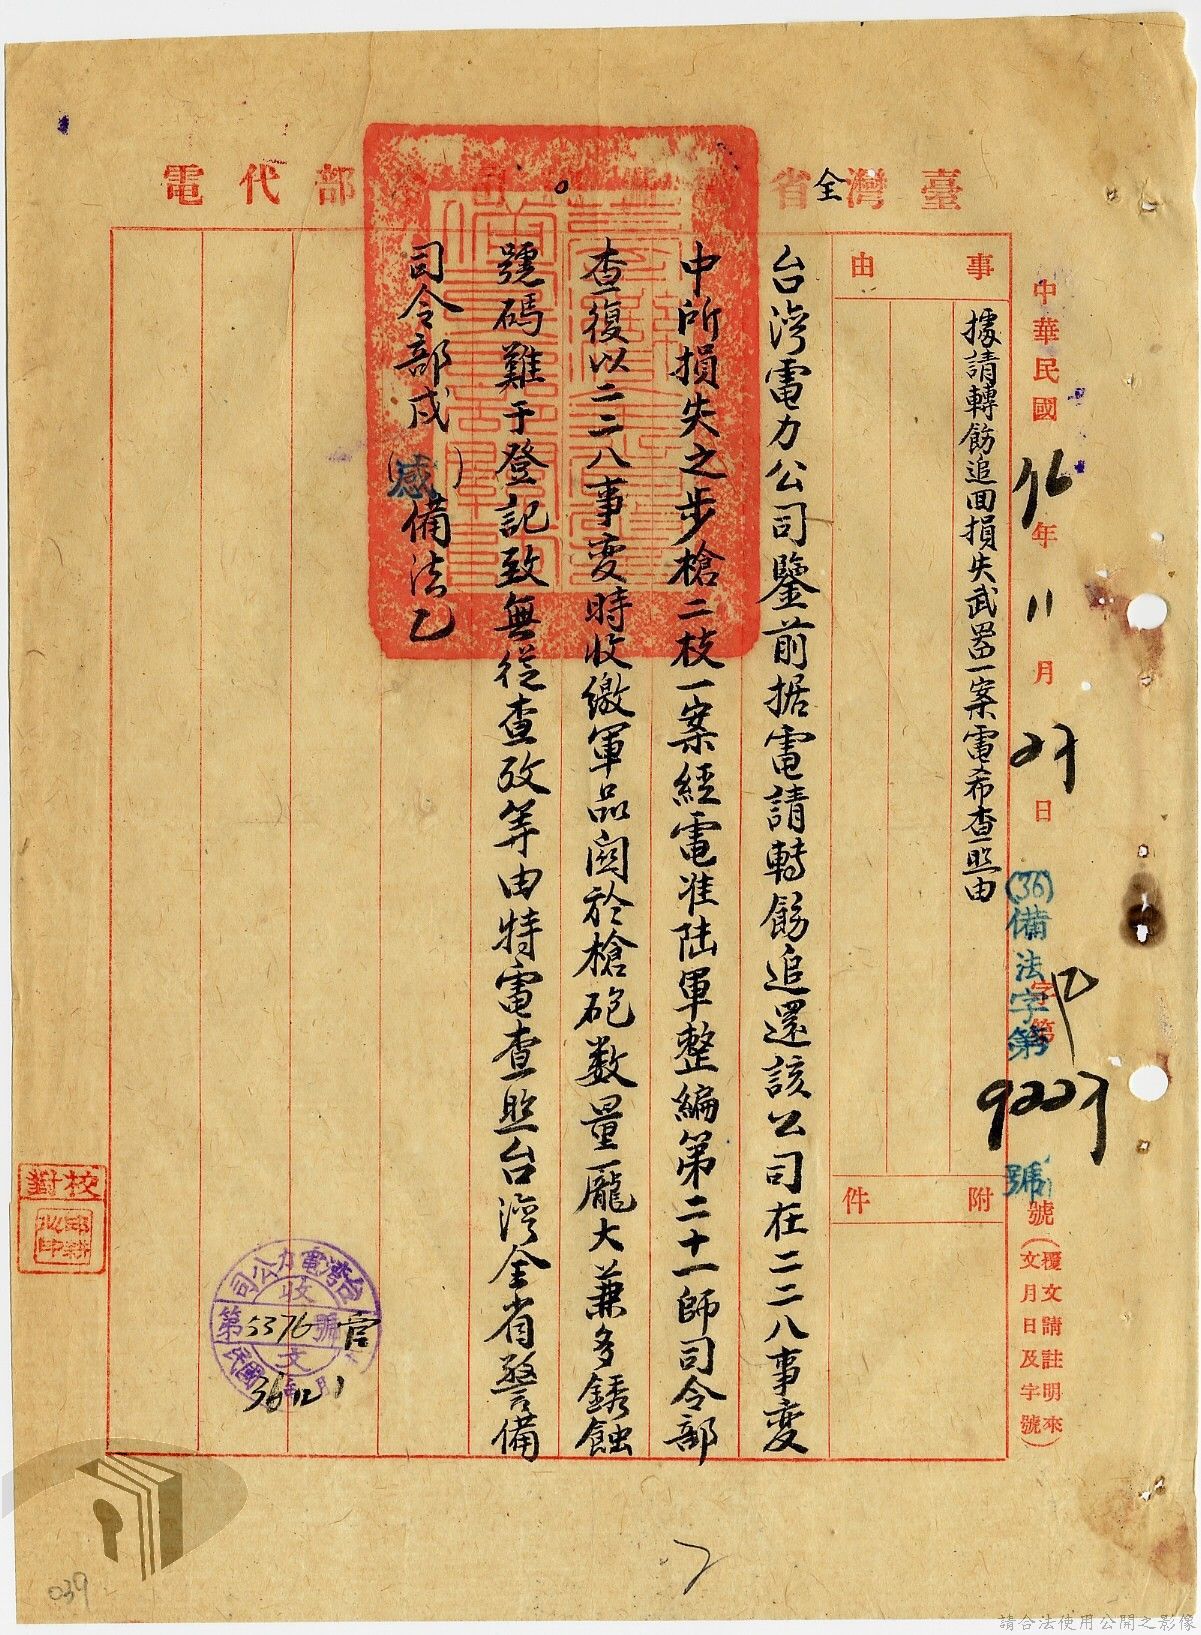 臺灣全省
部代電
中華民國36年11月27日
(36)備法字第
字第
乙
9227
號
號(覆文請註明來文月日及字號)
事由
據請轉飭追回損失武器一案電希查照由
附件
台湾電力公司鑒前据電請轉飭追還該公司在二二八事变
中所損失之步槍二枝一案經電准陆軍整編第二十一師司令部
查復以二二八事变時收繳軍品関於槍砲数量龐大兼多銹蝕
號碼難于登記致無從查攷等由特電查照台湾全省警備
司令部戌(感)備法乙
校對
台灣電力公司
收文
第5376號
官
民國36年12月1
039
請合法使用公開之影像